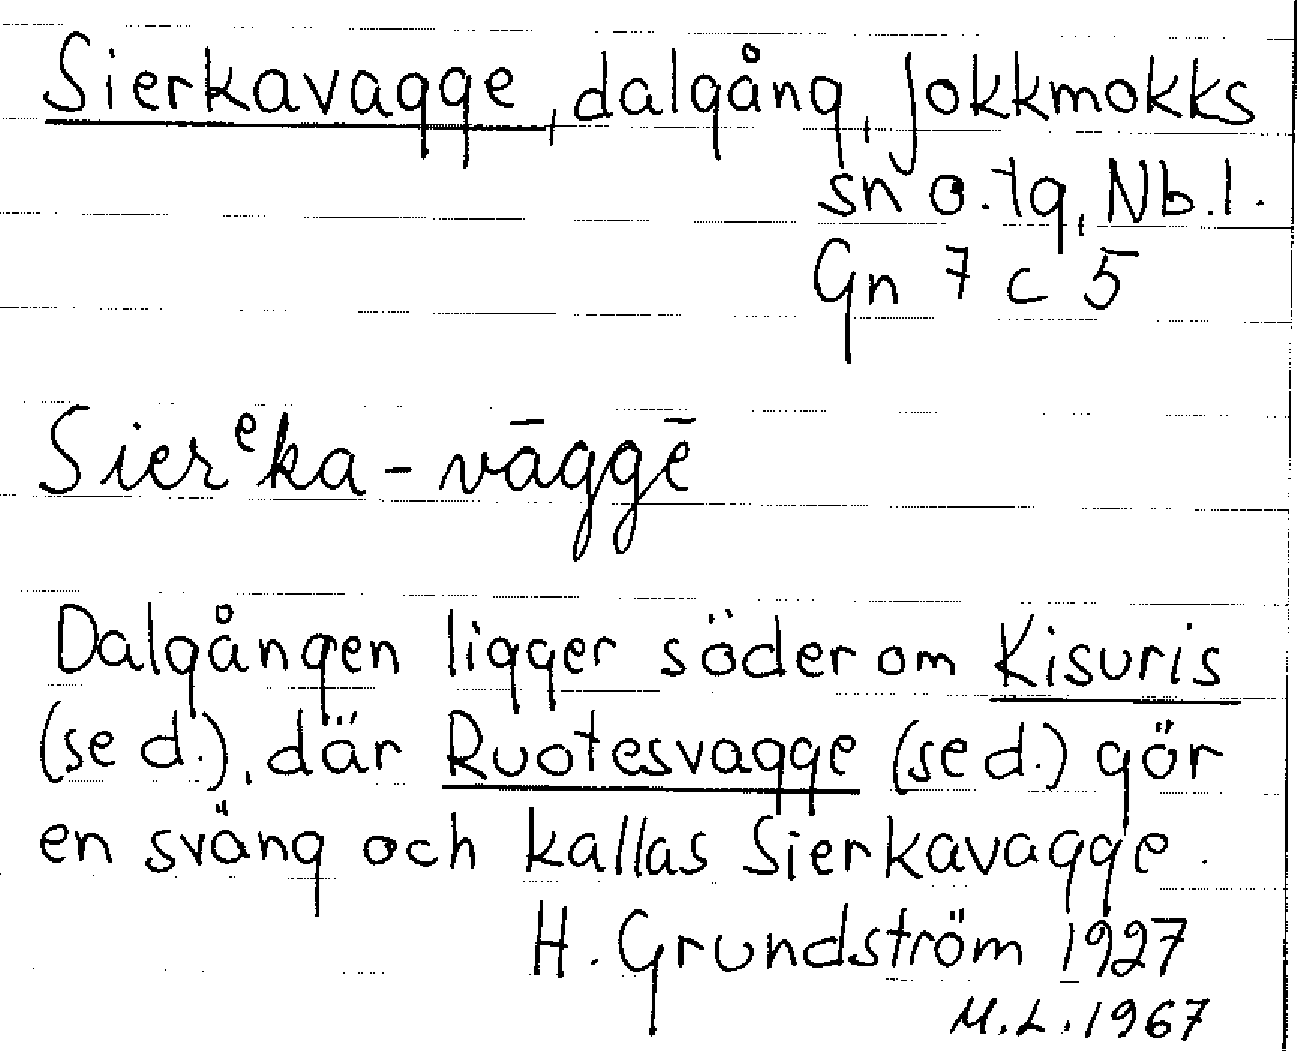 Sierkavagge, dalgång, Jokkmokks
sn o. tg, Nb.l.
Gn 7 c 5
Sierᵉka-vāggē
Dalgången ligger söder om Kisuris
(se d.), där Ruotesvagge (se d.) gör
en sväng och kallas Sierkavagge.
H. Grundström 1927
M.L. 1967